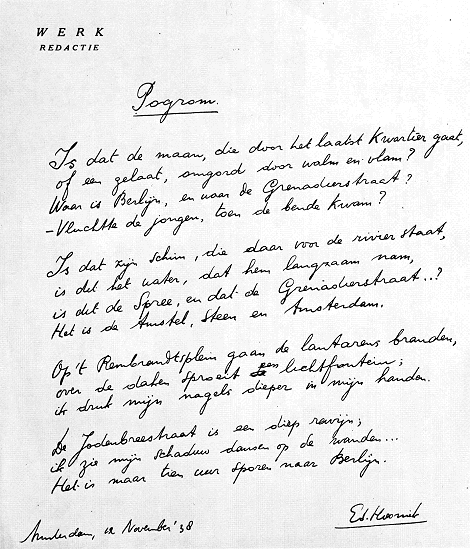 WERK
REDACTIE
Pogrom.
Is dat de maan, die door het laatst kwartier gaat,
of een gelaat, omgord door walm en vlam?
Waar is Berlijn, en waar de Grenadierstraat?
-Vluchtte de jongen, toen de bende kwam?
Is dat zijn schim, die daar voor de rivier staat,
is dit het water, dat hem langzaam nam,
is dit de Spree, en dat de Grenadierstraat..?
Het is de Amstel, steen en Amsterdam.
Op 't Rembrandtsplein gaan de lantarens branden,
over de daken sproeit een lichtfontein;
ik druk mijn nagels dieper in mijn handen.
De Jodenbreestraat is een diep ravijn;
ik zie mijn schaduw dansen op de wanden...
Het is maar tien uur sporen naar Berlijn.
Amsterdam, 12 November '38
Ed. Hoornik